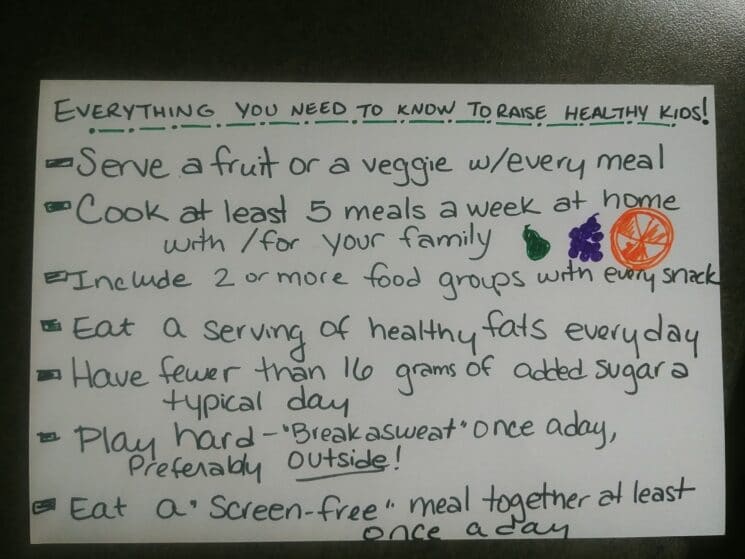 EVERYTHING YOU NEED TO KNOW TO RAISE HEALTHY KIDS!
- Serve a fruit or a veggie w/every meal
- Cook at least 5 meals a week at home
with /for your family
- Include 2 or more food groups with every snack
- Eat a serving of healthy fats everyday
- Have fewer than 16 grams of added sugar a
typical day
- Play hard - "Break a sweat" once a day,
Preferably outside!
- Eat a "Screen-free" meal together at least
once a day